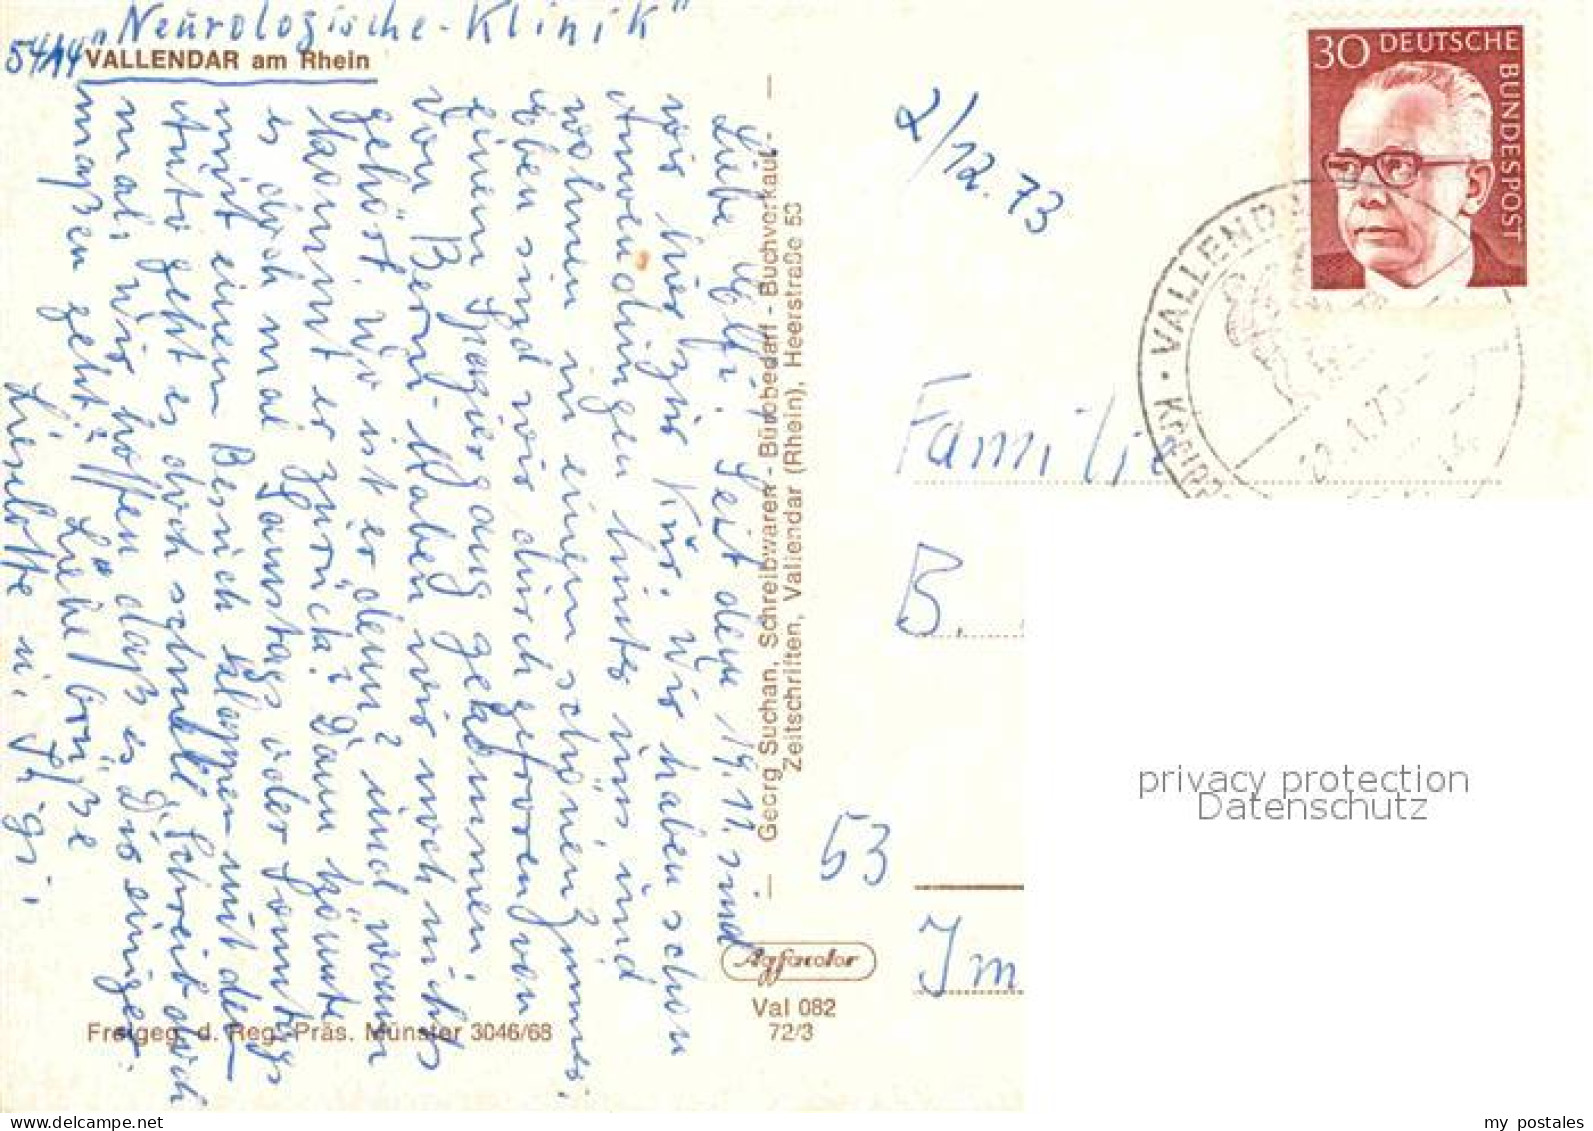 "Neurologische-Klinik"
5414 VALLENDAR am Rhein
Liebe Elfi. Seit dem 19.11. sind
wir hier zur Kur. Wir haben schon
Anwendungen hinter uns und
wohnen in einem schönen Zimmer.
Eben sind wir durchgefroren von
einem Spaziergang gekommen.
Von Bernd haben wir noch nichts
gehört. Wo ist er denn? und wann
kommt er zurück? Dann könnte
es doch mal Samstags oder Sonntags
mit einem Besuch klappen mit dem
Auto geht es doch schnell. Schreib doch
mal. Wir hoffen daß es Dir einiger-
maßen geht. Liebe Grüße
Lieselotte u.
Georg Suchan, Schreibwaren - Bürobedarf - Buchverkauf -
Zeitschriften, Vallendar (Rhein), Heerstraße 53
Agfacolor
Val 082
72/3
Freigeg. d. Reg.-Präs. Münster 3046/68
2/12.73
30 DEUTSCHE BUNDESPOST
VALLENDAR
Familie
B.
53
Im
privacy protection
Datenschutz
my postales